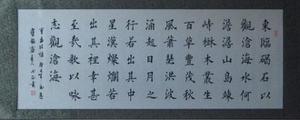 東臨碣石以
觀滄海水何
澹澹山島竦
峙樹木叢生
百草豐茂秋
風蕭瑟洪波
涌起日月之
行若出其中
星漢燦爛若
出其裡幸甚
至哉歌以詠
志觀滄海